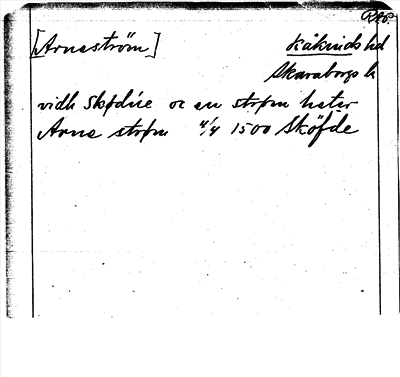 RAP.
[Arneström] Kåkinds hd
Skaraborgs l.
vidh Skødvie oc en strøm heter
Arne strøm 4/4 1500 Sköfde